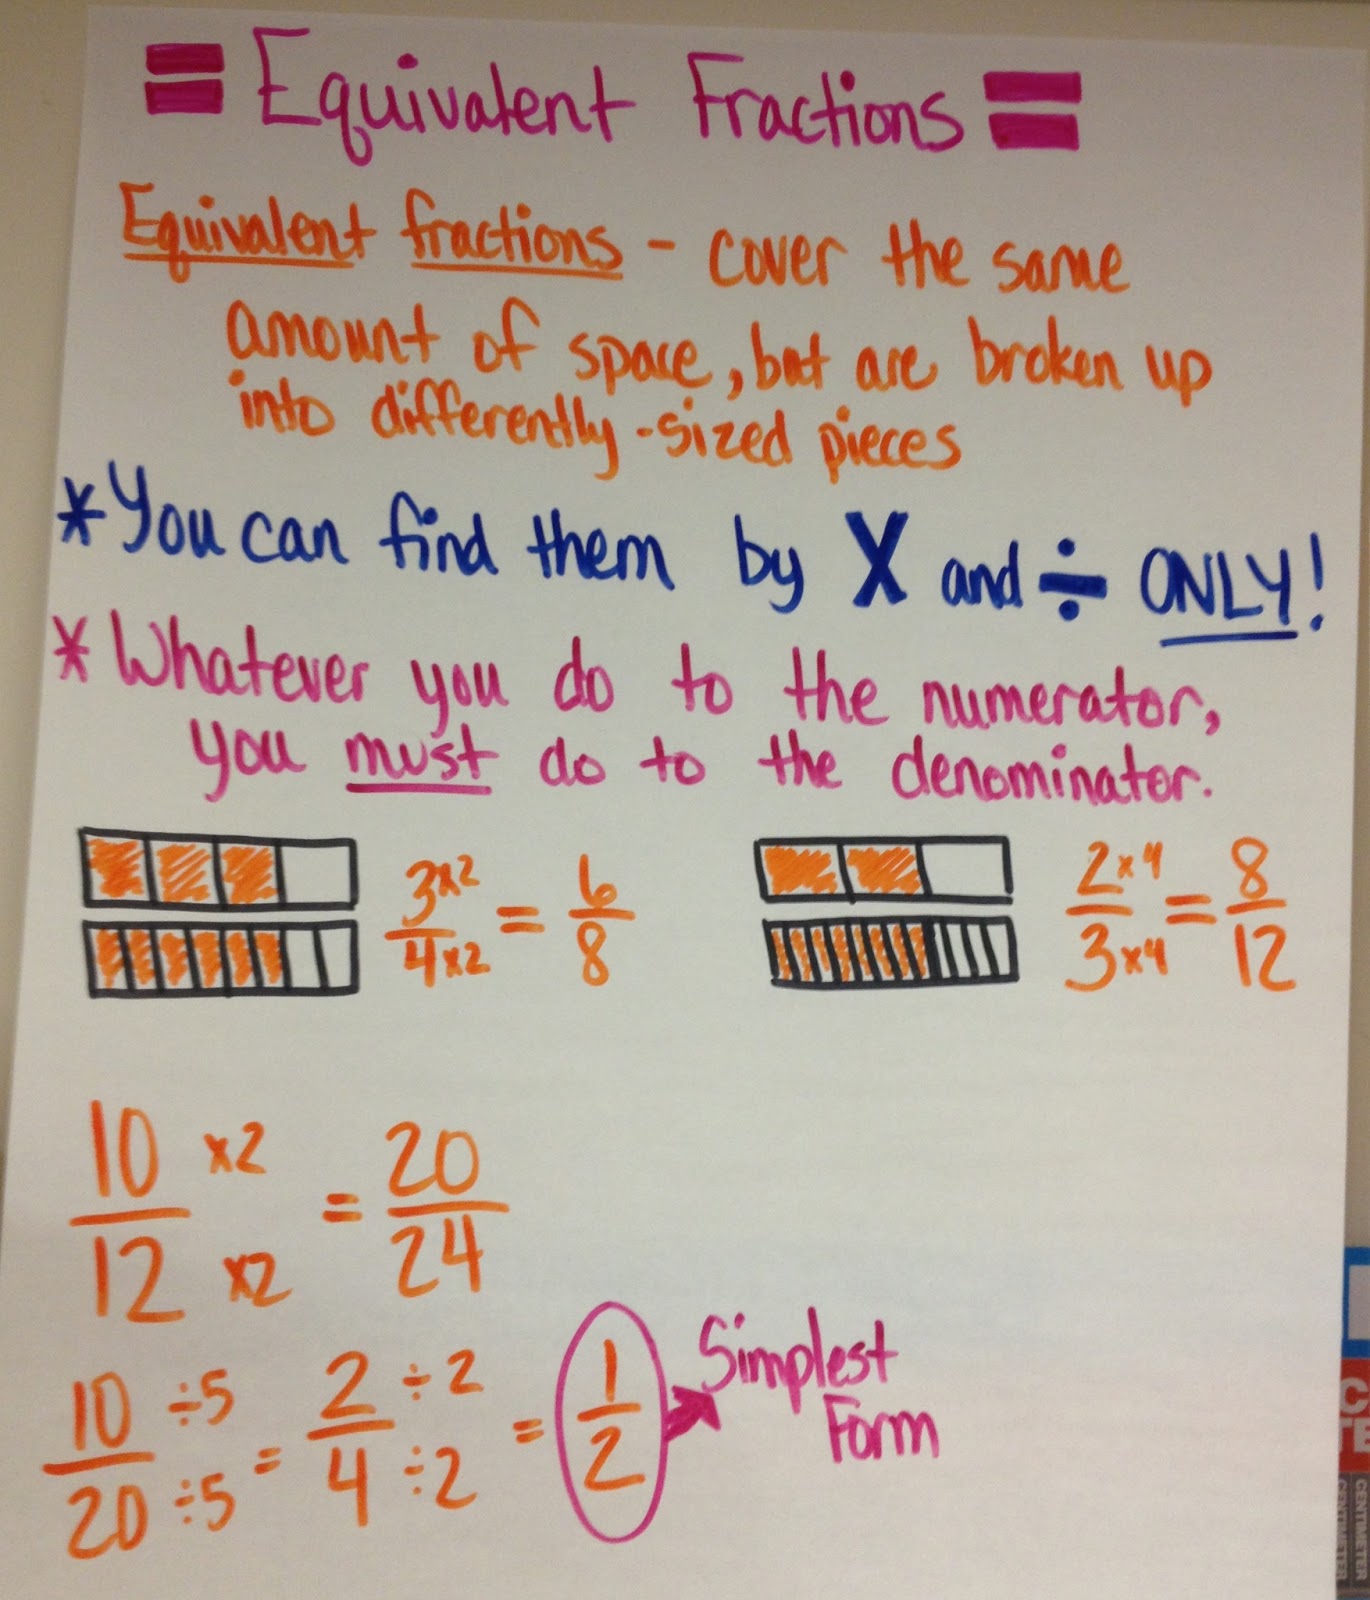 = Equivalent Fractions =
Equivalent fractions - cover the same
amount of space, but are broken up
into differently-sized pieces
*You can find them by X and ÷ ONLY!
*Whatever you do to the numerator,
you must do to the denominator.
3×2/4×2 = 6/8
2×4/3×4 = 8/12
10×2/12×2 = 20/24
10÷5/20÷5 = 2÷2/4÷2 = 1/2 Simplest
Form
CENTIMETER
CENTIMETER